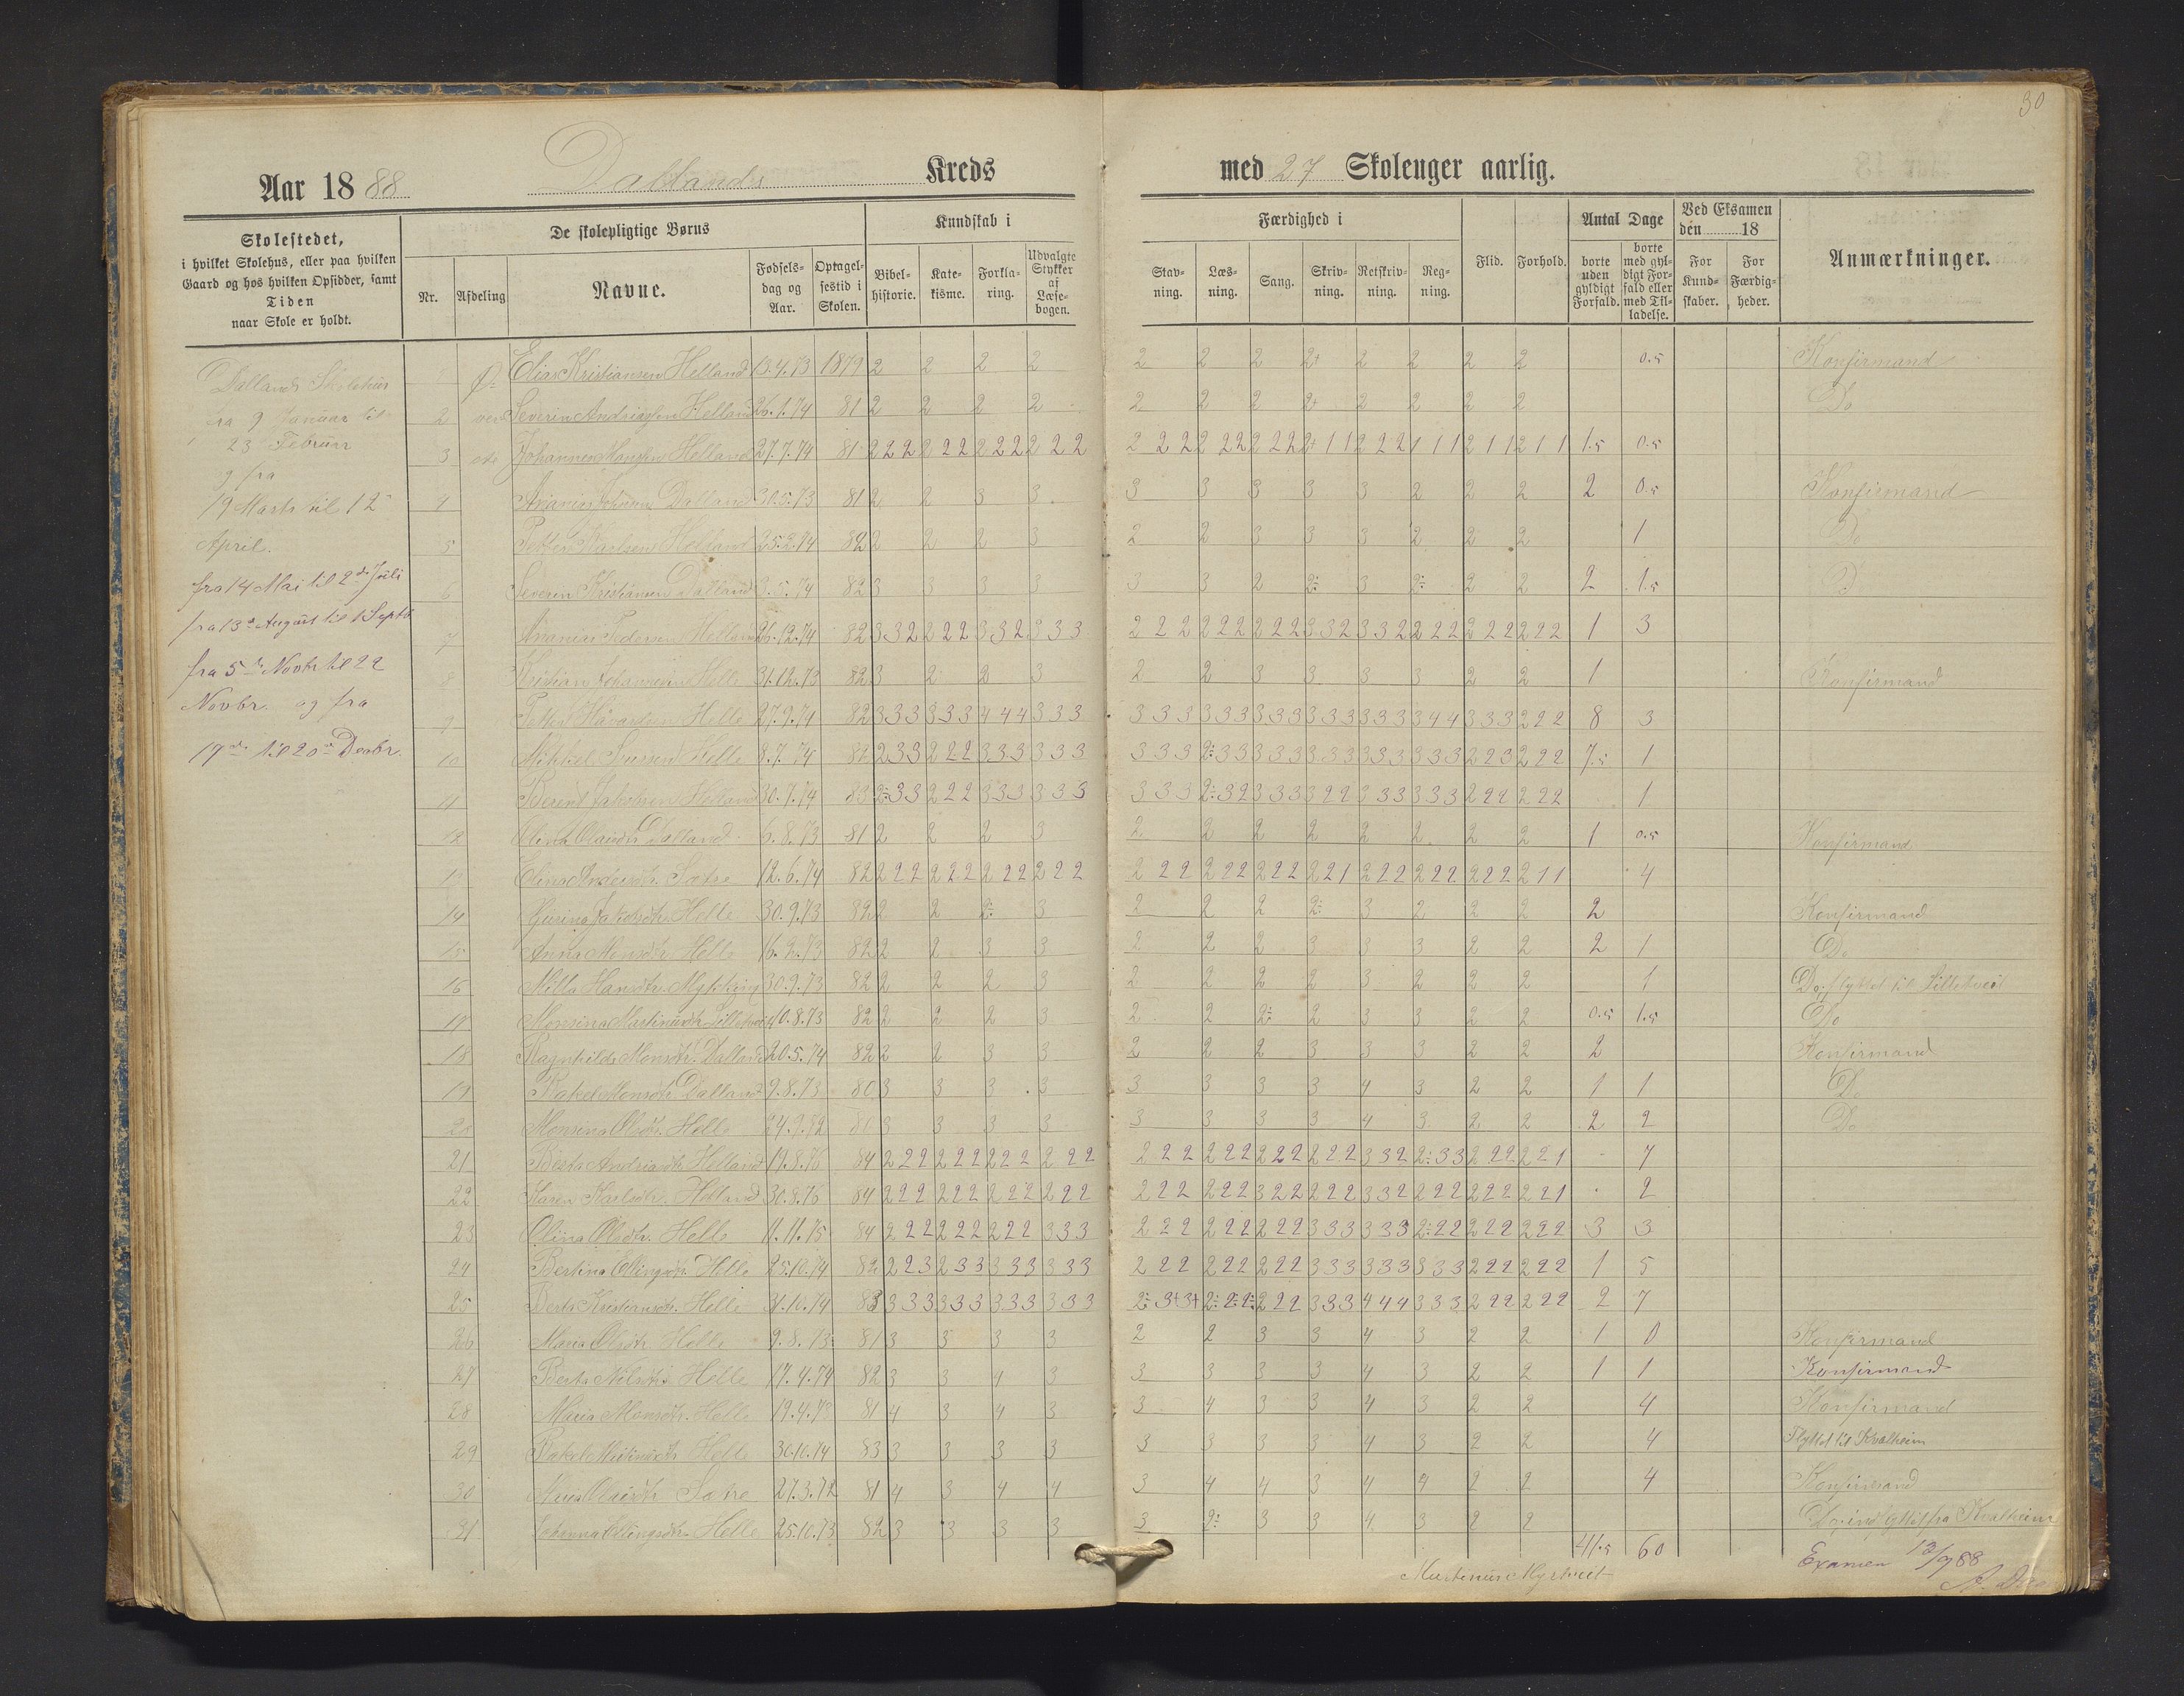 30
Aar 1888 Dallands Kreds med 27 Skoleuger aarlig.
Skolestedet, i hvilket Skolehus, eller paa hvilken Gaard og hos hvilken Opsidder, samt Tiden naar Skole er holdt.
De skolepligtige Børns
Nr. Afdeling Navne. Fødselsdag og Aar. Optagelsestid i Skolen.
Kundskab i
Bibelhistorie. Katekisme. Forklaring. Udvalgte Stykker af Læsebogen.
Færdighed i
Stavning. Læsning. Sang. Skrivning. Retskrivning. Regning.
Flid. Forhold.
Antal Dage
borte uden gyldigt Forfald. borte med gyldigt Forfald eller med Tilladelse.
Ved Eksamen den 18
For Kundskaber. For Færdigheder.
Anmærkninger.
Dallands Skolehus
fra 9 Januar til
23 Februar
og fra
19 Marts til 12
April.
fra 14 Mai til 2de Juli
fra 13de August til 1 Septb
fra 5te Novbr til 22
Novbr. og fra
19de til 20de Decbr.
Ø- Elias Kristiansen Helland 13.4.73 1879 2 2 2 2 2 2 2 2+ 2 2 2 2 0.5 Konfirmand
2 vers Severin Andreassen Helland 26.1.74 81 2 2 2 2 2 2 2 2+ 2 2 2 2 Do
3 ste Johannes Monsen Helland 27.7.74 81 222 222 222 222 222 222 222 2+11 222 111 211 211 1.5 0.5
4 Ananias Dalland 30.5.73 81 2 2 3 3 3 3 3 3 3 2 2 2 2 0.5 Konfirmand
5 Petter Karlsen Helland 25.2.74 82 2 2 2 3 2 2 3 3 3 2 2 2 1 Do
6 Severin Kristiansen Dalland 3.5.74 82 3 3 3 3 3 3 2 2÷ 3 2÷ 2 2 2 1.5 D
7 Ananias Pedersen Helland 26.12.74 82 332 222 332 333 222 222 222 332 332 222 222 222 1 3
8 Kristian Johannesen Helle 31.12.73 82 3 2 2 3 2 2 3 3 3 3 2 2 1 Konfirmand
9 Petter Håvardsen Helle 27.9.74 82 333 333 444 333 333 333 333 333 333 344 333 222 8 3
10 Mikkel Iversen Helle 8.7.74 81 233 222 333 333 333 2÷33 333 333 333 333 223 222 7.5 1
11 Berent Jakobsen Helland 30.7.74 83 2÷33 222 333 333 333 2÷32 333 322 333 333 222 222 1
12 Olina Olaisdtr Dalland 6.8.73 81 2 2 2 3 2 2 2 2 2 2 2 2 1 0.5 Konfirmand
13 Elina Andersdtr. Sætre 12.6.74 82 222 222 222 222 222 222 222 221 222 222 222 211 4
14 Jakobsdtr. Helle 30.9.73 82 2 2 2÷ 3 2 2 2 2÷ 3 2 2 2 2 Konfirmand
15 Anna Monsdtr. Helle 16.2.73 82 2 2 3 3 2 2 2 3 3 3 2 2 2 1 Do
16 Milla Hansdtr. Myking 30.9.73 82 2 2 2 3 2 2 2 2 3 2 2 2 1 Do; flyttet til Lilletveit
17 Monsina Martinusdtr. Lilletveit 10.8.73 82 2 2 2 3 2 2 2÷ 2 3 3 2 2 0.5 1.5 Do
18 Ragnhilda Monsdtr. Dalland 20.5.74 82 2 2 3 3 2 2 2 3 3 3 2 2 2 Konfirmand
19 Rakel Monsdtr Dalland 9.8.73 80 3 3 3 3 3 3 3 3 4 3 2 2 1 1 Do
20 Monsina Olsdtr. Helle 24.9.72 80 3 3 3 3 3 3 3 3 4 3 2 2 2 2 Do
21 Berta Andreasdtr Helland 19.8.76 84 222 222 222 222 222 222 222 222 332 2÷33 222 221 7
22 Karen Karlsdtr. Helland 30.8.76 84 222 222 222 222 222 222 322 222 332 222 222 221 2
23 Olina Olsdtr. Helle 11.11.75 84 222 222 222 333 222 222 222 333 333 2÷22 222 222 3 3
24 Bertina Ellingsdtr. Helle 25.10.74 82 223 233 333 333 222 222 222 333 333 333 222 222 1 5
25 Berta Kristiansdtr. Helle 31.10.74 83 333 333 333 333 2÷3+3+ 2÷2÷2÷ 222 333 444 333 222 222 2 7
26 Maria Olsdtr Helle 9.8.73 81 3 3 3 3 2 2 3 3 4 3 2 2 1 0 Konfirmand
27 Berta Nilsdtr Helle 17.4.74 82 3 3 4 3 3 3 3 3 4 3 2 2 1 1 Konfirmand
28 Maria Monsdtr. Helle 19.4.73 81 4 3 4 3 3 4 3 3 4 3 2 2 4 Konfirmand
29 Rakel Helle 30.10.74 83 3 3 3 3 3 3 3 3 4 3 2 2 4 Flyttet til Kvalheim
30 Anna Olaisdtr Sætre 27.3.72 81 4 3 4 4 3 4 4 3 4 4 2 2 4 Konfirmand
31 Johanna Ellingsdtr. Helle 25.10.73 82 3 3 3 3 3 2÷ 3 3 4 3 2 2 Do; indflyttet fra Kvalheim
41.5 60
Martinus Myrtveit
Examen 13/9 88